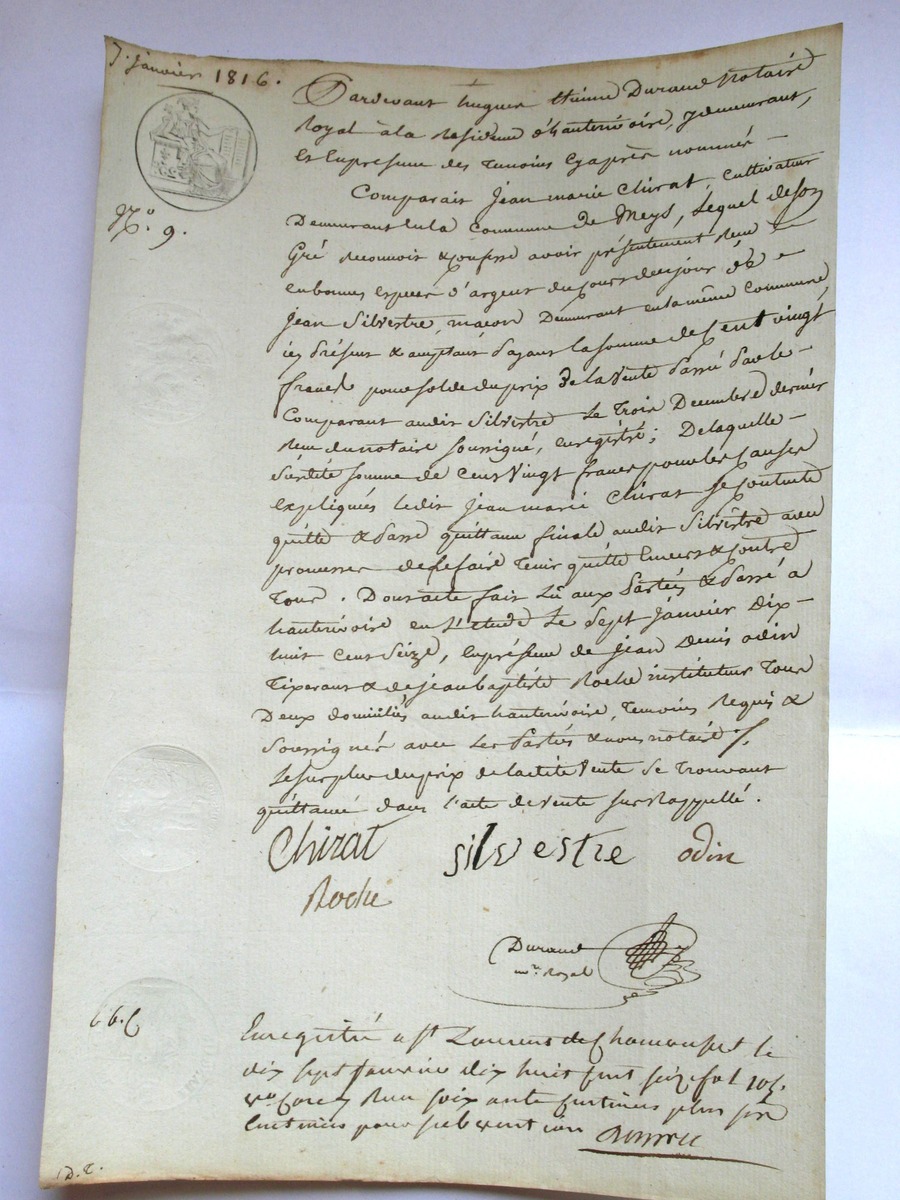 7. janvier 1816.
Pardevant hugues Etienne Durand Notaire
Royal à la Residence d'hauterivoire, y demeurant,
Et En presence des temoins Cy après nommés
Comparait Jean marie Chirat, cultivateur
Demeurant En la Commune de Meys, Lequel de son
Gré reconnoit & Confesse avoir présentement Recu
en bonnes especes d'argent du Cours de ce jour, de
Jean Silvestre, macon Demeurant en la même Commune,
ici présent & acceptant payant la somme de Cent vingt
francs pour solde du prix de la Vente Passée Par le
Comparant audit Silvestre Le Trois Decembre dernier
Recu du notaire soussigné, enregistré; De laquelle
susdite somme de Cent Vingt francs pour les Causes
Expliquées ledit Jean marie Chirat Se Contente
quitte & Passe quittance finale audit Silvestre avec
promesse de Le faire Tenir quitte Envers & Contre
Tous. Dont acte fait Lu aux Parties & Passé à
hauterivoire en L'Etude Le Sept Janvier Dix-
huit Cent Seize, En présence de Jean Denis odin
Tixerant & de Jean baptiste Roche instituteur Tous
Deux domiciliés audit hauterivoire, Temoins Requis &
Soussignés avec Les Parties & nous notaire
Le surplus du prix de ladite Vente Se Trouvant
quittancé dans l'acte de vente sus Rappellé.
N.º 9.
Chirat silvestre odin
Roche
Durand
nre. Royal
66. C
Enregistré a St Laurent de Chamousset le
dix sept Janvier dix huit Cent seize fol 105
vo. Recu soixante Centimes plus six
Centimes pour subvention
D. C.